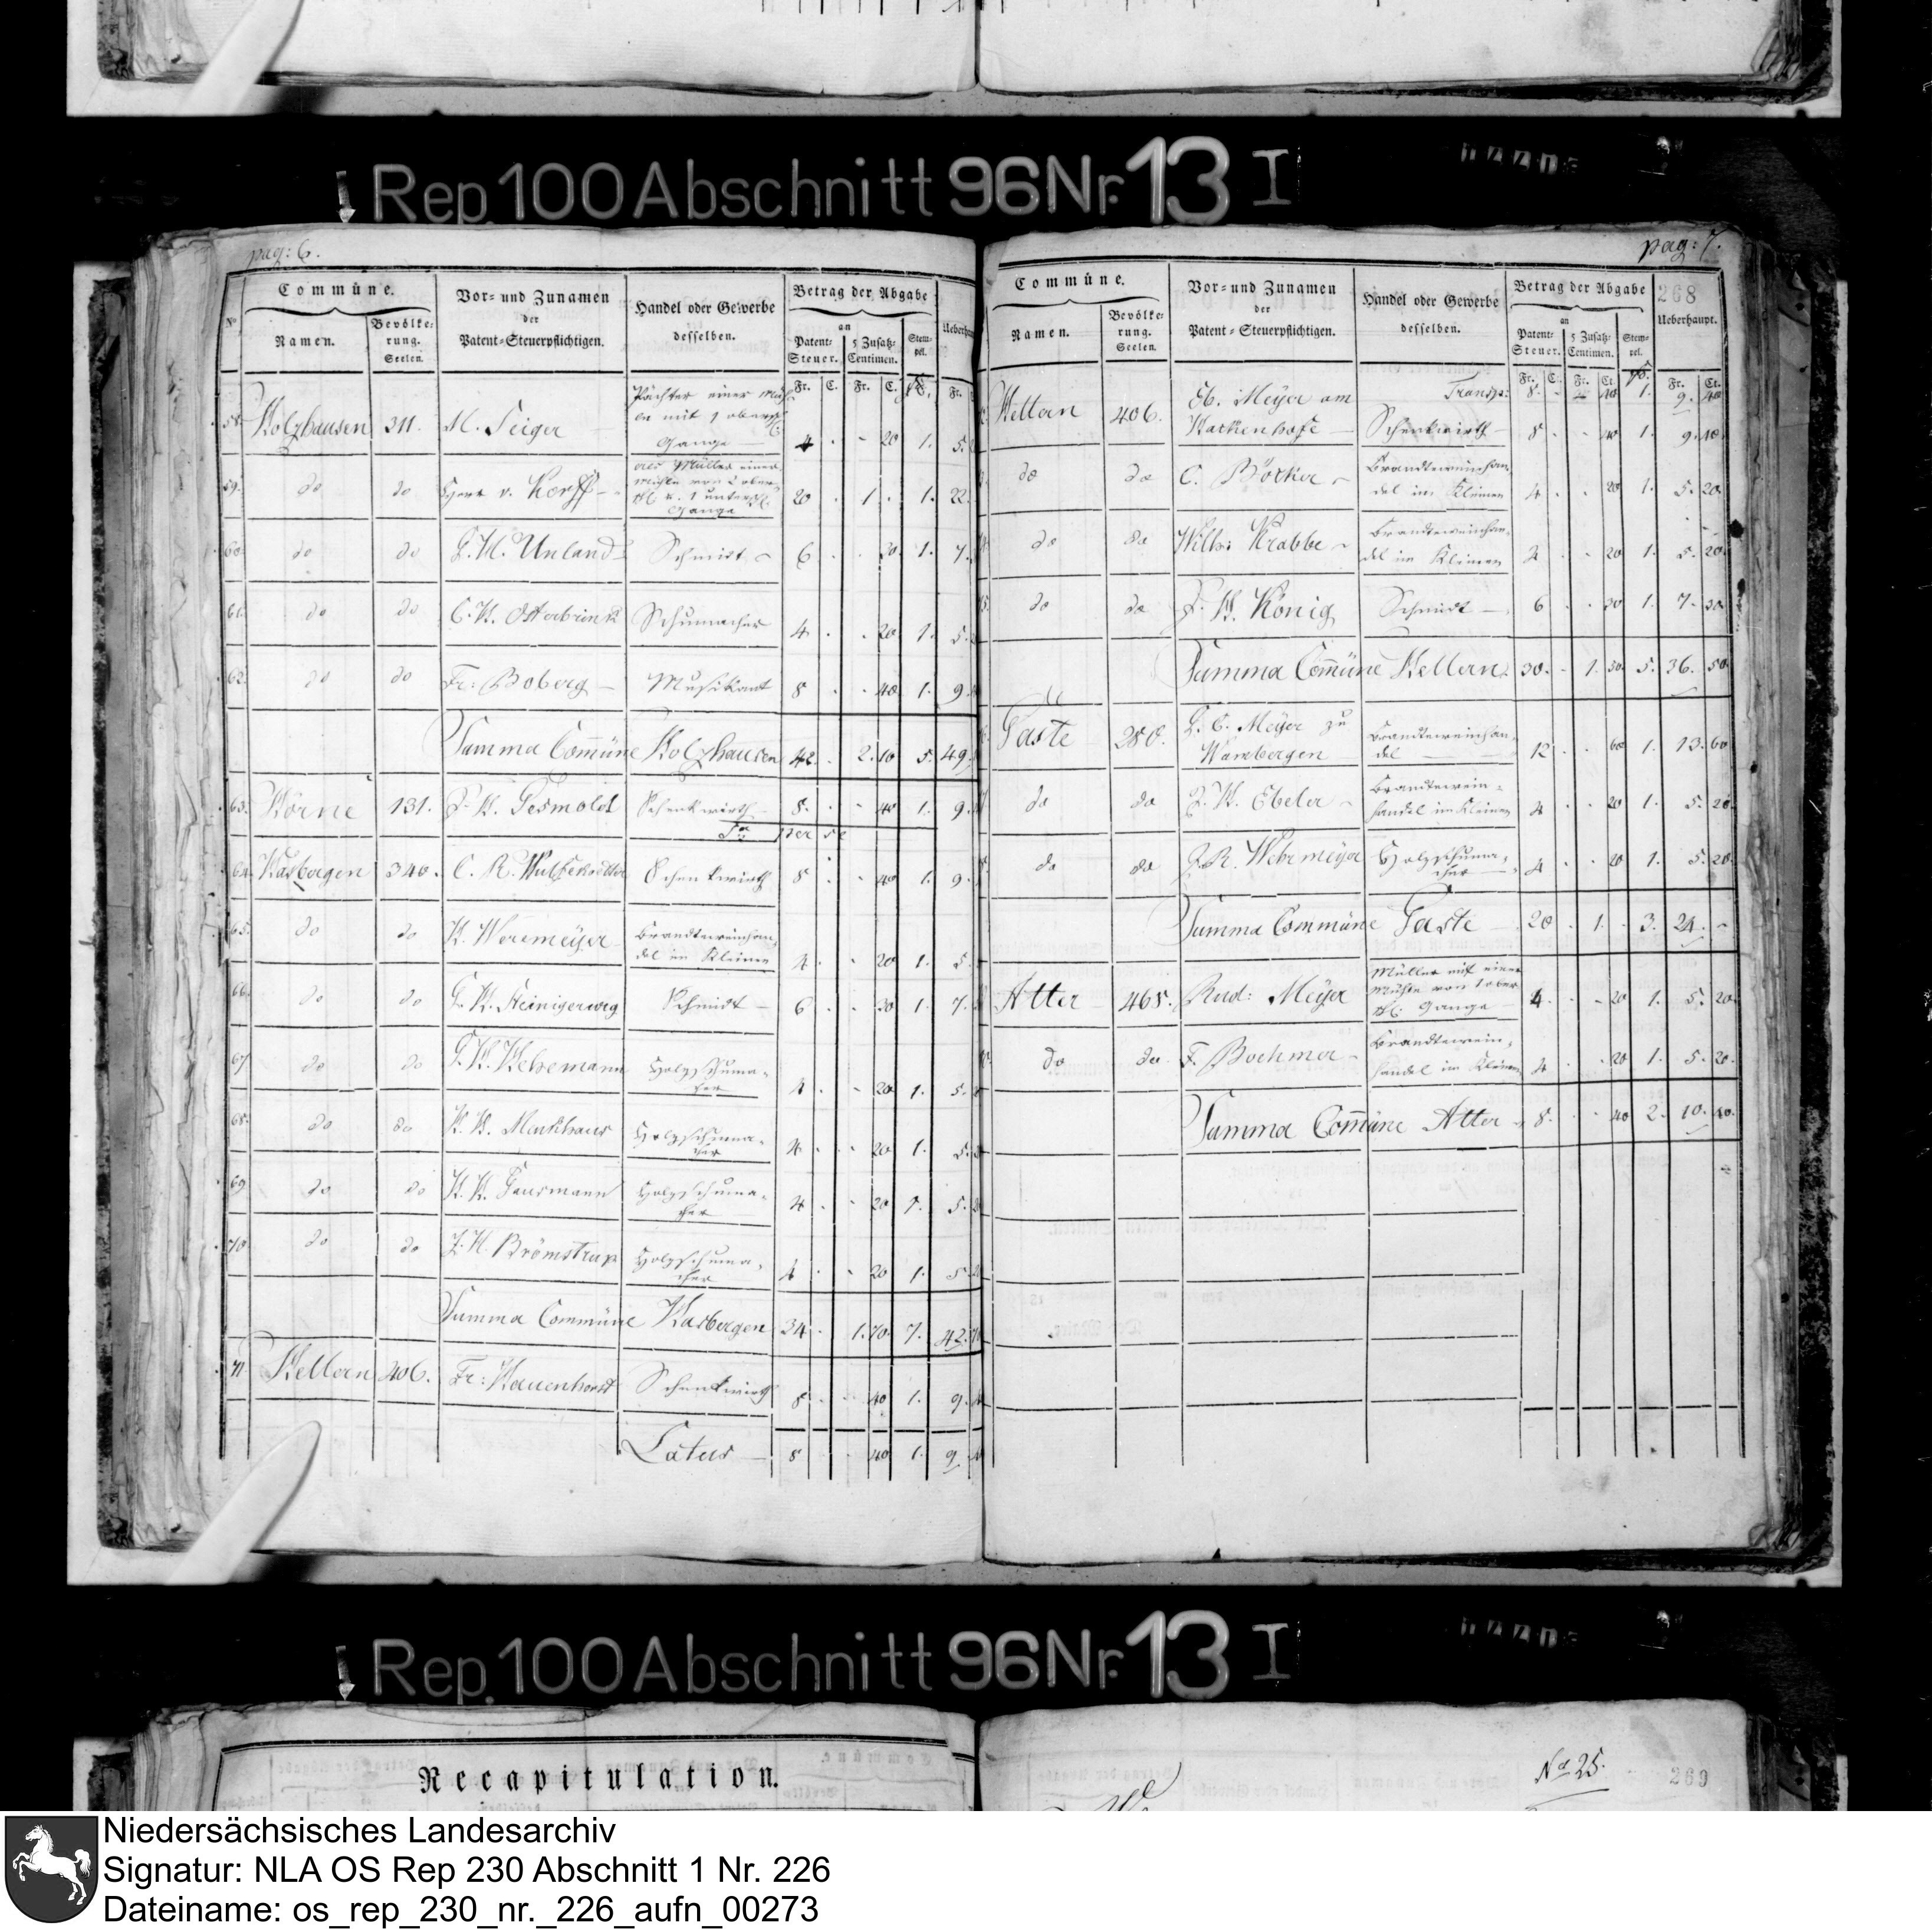 Rep. 100 Abschnitt 96 Nr. 13 I
pag: 6.
Commüne. Vor- und Zunamen der Patent-Steuerpflichtigen. Handel oder Gewerbe desselben. Betrag der Abgabe
Nº Namen. Bevölke-rung. Seelen. an Patent-Steuer. 5 Zusatz-Centimen. Stem-pel.
Fr. C. Fr. C. Fr.
58. Holzhausen 311. M. Seiger Pächter einer Müh-
le mit 1 oberschl.
Gange 4 20 1. 5.
59. do do Herr v. Korff als Müller einer
Mühle von 1 ober
schl. u. 1 unterschl.
Gange 20 1. 1. 22.
60. do do G. H. Unland Schmidt 6 30 1. 7.
61. do do C. H. Osterbrink Schumacher 4 20 1. 5.
62. do do Fr: Boberg Musikant 8 40 1. 9.
Summa Com̄üne Holzhausen 42. 2. 10 5. 49.
63. Hörne 131. F. H. Gesmold Schenkwirth 8. 40 1. 9.
Sa per se
64. Hasbergen 340. C. R. Schenkwirth 8 40 1. 9.
65. do do H. Weremeyer Brandteweinhan-
del im Kleinen 4 20 1. 5.
66. do do G. H. Heinigerweg Schmidt 6 30 1. 7.
67 do do Holzschuma-
cher 4 20 1. 5.
68. do do H. H. Menkhaus Holzschuma-
cher 4 20 1. 5.
69 do do H. H. Gausmann Holzschuma-
cher 4 20 1. 5.
70 do do J. H. Brömstrup Holzschuma-
cher 4 20 1. 5
Summa Commüne Hasbergen 34 1. 70. 7. 42.
71 Hellern 406. Fr: Hauenhorst Schenkwirth 8 40 1. 9.
Latus 8 40 1. 9
pag: 7.
268
Commüne. Vor- und Zunamen der Patent-Steuerpflichtigen. Handel oder Gewerbe desselben. Betrag der Abgabe Ueberhaupt.
Namen. Bevölke-rung. Seelen. an Patent-Steuer. 5 Zusatz-Centimen. Stem-pel.
Fr. C. Fr. Ct. Fr. Ct.
Transp: 8. 40 1. 9. 40
Hellern 406. Eb. Meyer am
Hackenhofe Schenkwirth 8 40 1. 9. 40
do do C. Böcker Brandteweinhan-
del im Kleinen 4 20 1. 5. 20
do do Wilh: Krabbe Brandteweinhan-
del im Kleinen 4 20 1. 5. 20
do do F. H. König Schmidt 6 30 1. 7. 30
Summa Com̄üne Hellern 30. 1. 50 5. 36. 50
Gaste 280. G. C. Meyer zu
Wambergen Brandteweinhan-
del 12 60 1. 13. 60
do do J. H. Ebeler Brandtewein-
handel im Kleinen 4 20 1. 5. 20
do do J. R. Wehrmeyer Holzschuma-
cher 4 20 1. 5. 20
Summa Commüne Gaste 20 1. 3. 24.
Atter 465. Rud: Meyer Müller mit einer
Mühle von 1 ober
schl: Gange 4 20 1. 5. 20
do do F. Boehmer Brandtewein-
handel im Kleinen 4 20 1. 5. 20.
Summa Com̄üne Atter 8. 40 2. 10. 40.
Rep. 100 Abschnitt 96 Nr. 13 I
Recapitulation.
No 25.
269
Niedersächsisches Landesarchiv
Signatur: NLA OS Rep 230 Abschnitt 1 Nr. 226
Dateiname: os_rep_230_nr._226_aufn_00273